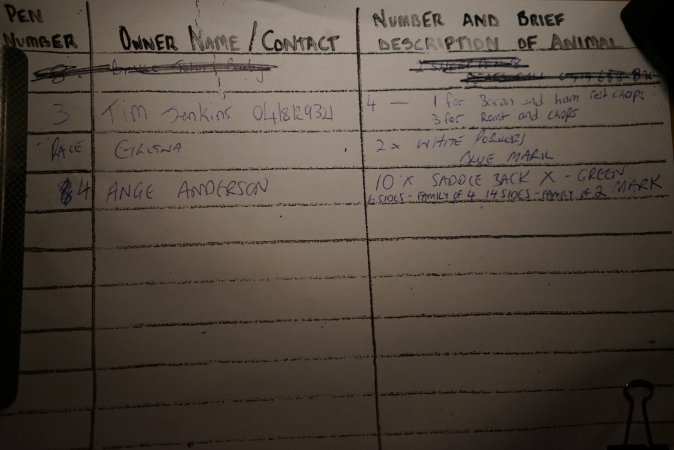 PEN NUMBER
OWNER NAME / CONTACT
NUMBER AND BRIEF DESCRIPTION OF ANIMAL
3 Tim Jenkins 4 — 1 for Bacon and ham rest chops
3 for Roast and chops
RACE 2 x WHITE PORKERS
BLUE MARK
4 ANGE ANDERSON 10 X SADDLE BACK X - GREEN MARK
6 SIDES - FAMILY OF 4 14 SIDES - FAMILY OF 2